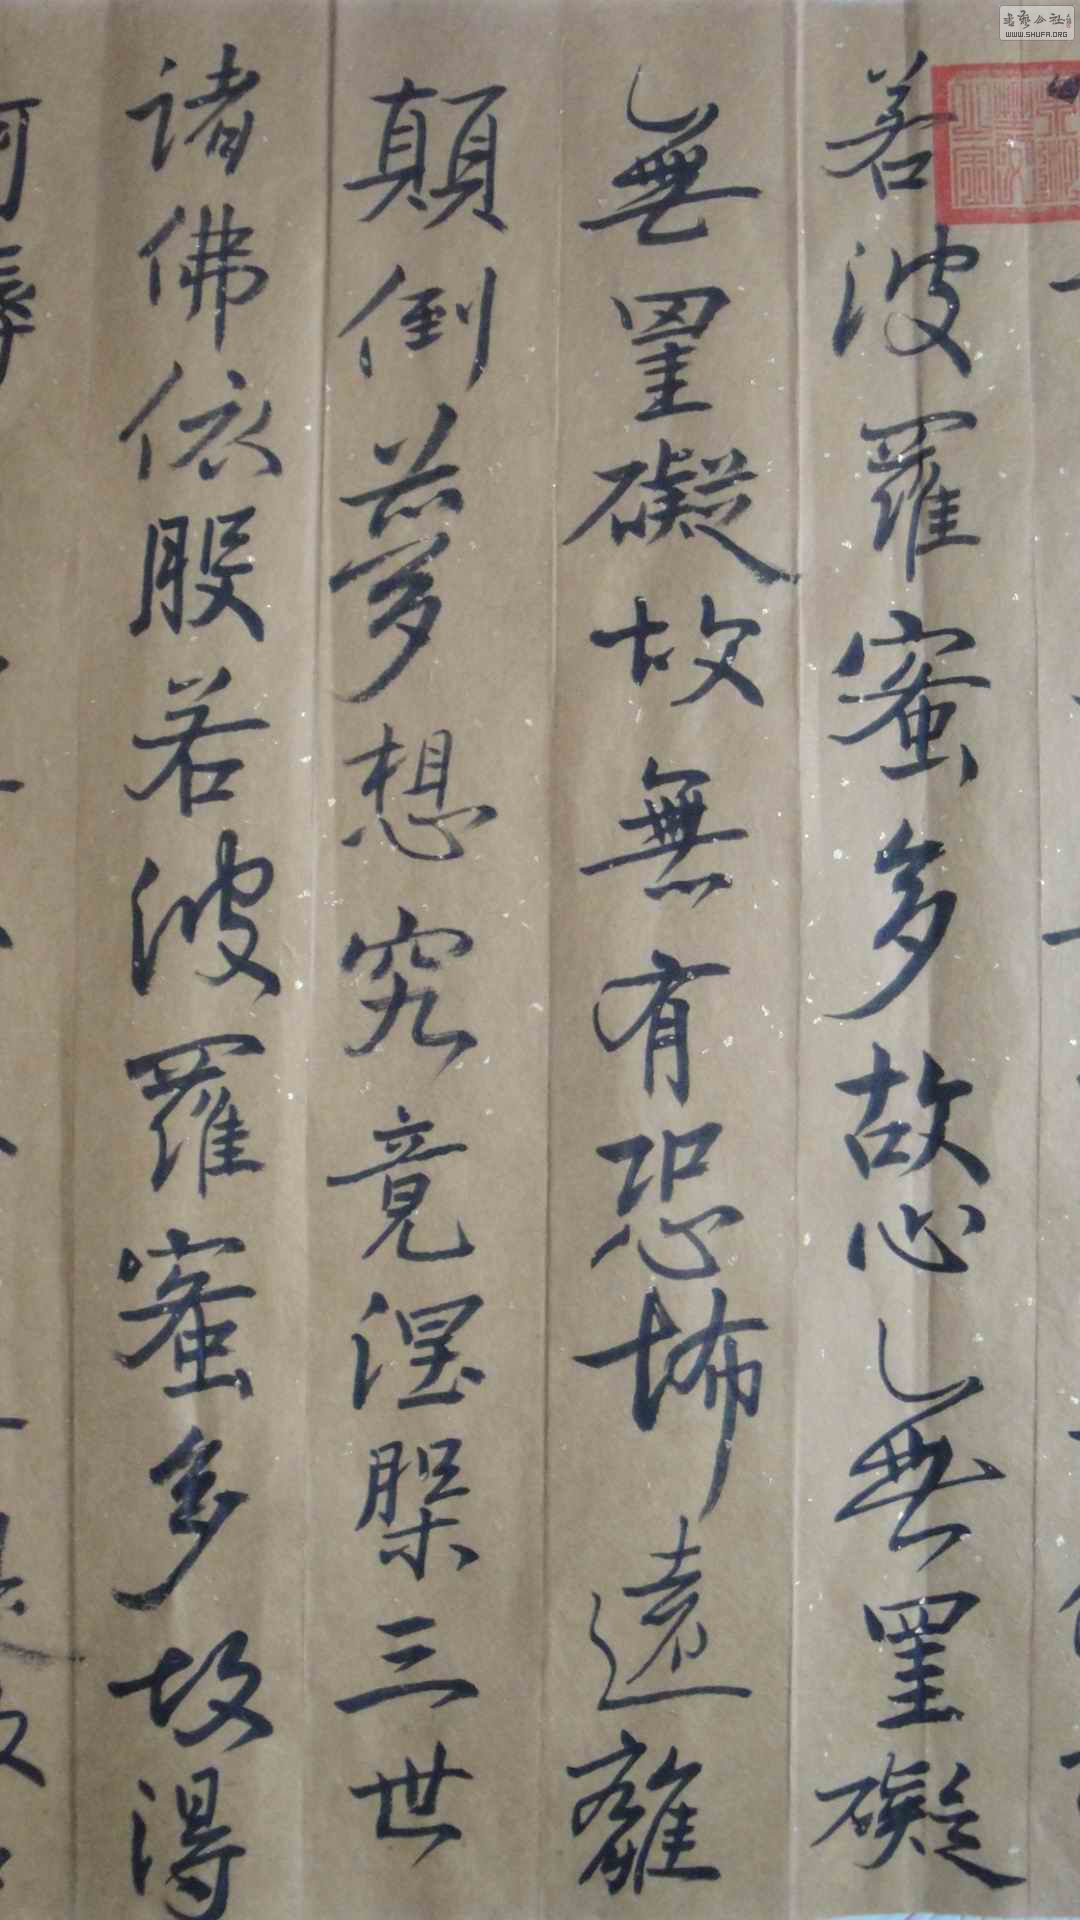 若波羅蜜多故心無罣礙
無罣礙故無有恐怖遠離
顛倒夢想究竟涅槃三世
諸佛依般若波羅蜜多故得
WWW.SHUFA.ORG